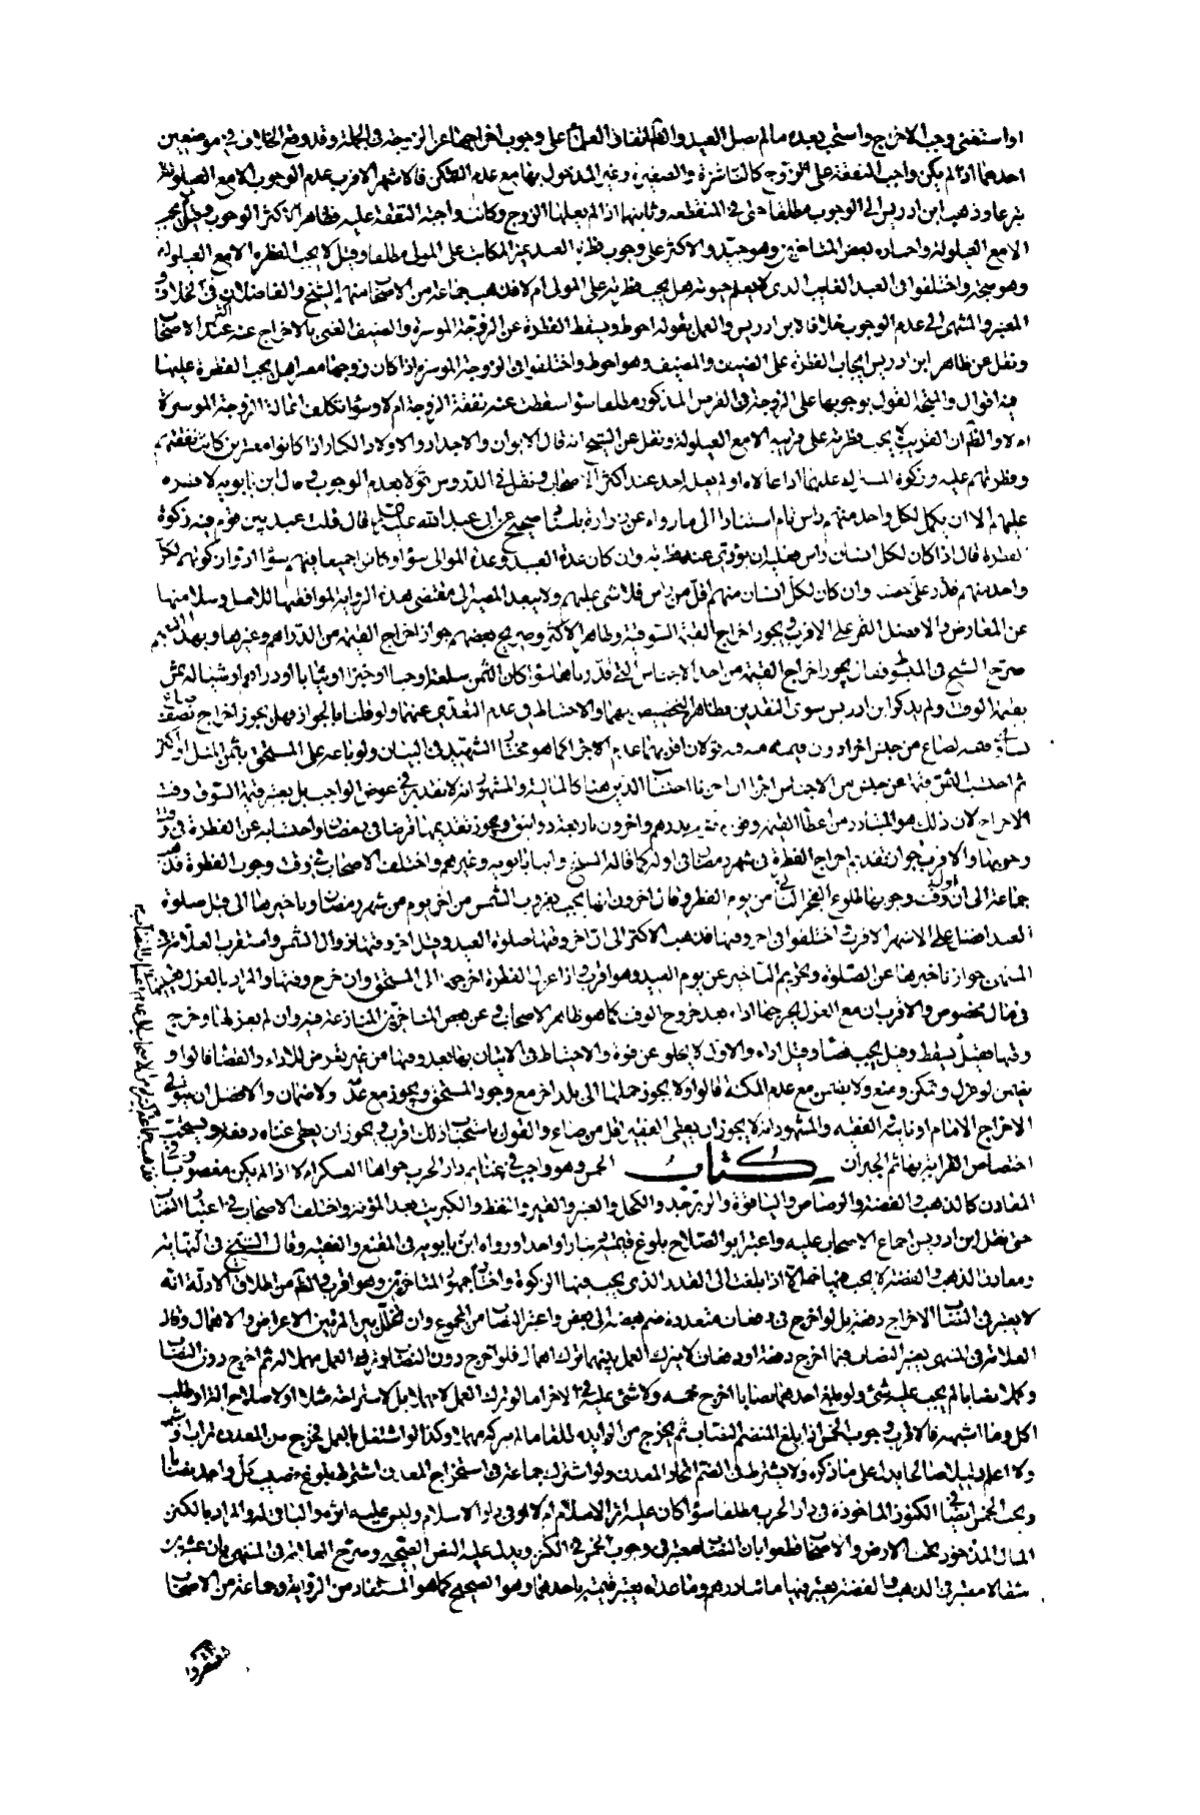 او استغنى وجب الاخراج واستحب بعده ما لم يصل العيد والظ اتفاق العلماء على وجوب اخراجها عن الزوجة في الجملة وقد وقع الخلاف في موضعين
احدهما اذا لم يكن واجب النفقة على الزوج كالناشزة والصغيرة وغير المدخول بها مع عدم التمكن فالاشهر الاقرب عدم الوجوب الا مع العيلولة
تبرعا وذهب ابن ادريس الى الوجوب مطلقا حتى في المنقطعة وثانيهما اذا لم يعلها الزوج وكانت واجبة النفقة عليه فظاهر الاكثر الوجوب وقيل لا يجب
الا مع العيلولة واختاره بعض المتاخرين وهو جيد والاكثر على وجوب فطرة العبد غير المكاتب على المولى مطلقا وقيل لا يجب الفطرة الا مع العيلولة
وهو متجه واختلفوا في العبد الغايب الذي لا يعلم حيوته هل يجب فطرته على المولى ام لا فذهب جماعة من الاصحاب منهم الشيخ والفاضلان في الخلاف و
المعتبر والمنتهى الى عدم الوجوب خلافا لابن ادريس والعمل بقوله احوط ويسقط الفطرة عن الزوجة الموسرة والضيف الغني بالاخراج عنه عند اكثر الاصحاب
ونقل عن ظاهر ابن ادريس ايجاب الفطرة على الضيف والمضيف وهو احوط واختلفوا في الزوجة الموسرة اذا كان زوجها معسرا هل يجب الفطرة عليها
فيه اقوال والمتجه القول بوجوبها على الزوجة في الفرض المذكور مطلقا سواء سقطت عنه نفقة الزوجة ام لا وسواء تكلف اعالة الزوجة الموسرة
ام لا والظ ان القريب لا يجب فطرته على قريبه الا مع العيلولة ونقل عن الشيخ انه قال الابوان والاجداد والاولاد الكبار اذا كانوا معسرين كانت نفقتهم
وفطرتهم عليه وزكوة المملوك عليهما اذا عالاه او لم يعله احد عند اكثر الاصحاب ونقل في الدروس قولا بعدم الوجوب وقال ابن بابويه لا فطرة
عليهم الا ان يكمل لكل واحد منهم راس تام استنادا الى ما رواه عن زرارة باسناد صحيح عن ابي عبد الله عليه السلام قال قلت عبد بين قوم فيه زكوة
الفطرة قال اذا كان لكل انسان راس فعليه ان يؤدي عنه فطرته وان كان عدة العبيد وعدة الموالى سواء وكانوا جميعا فيهم سواء ادوا زكوتهم لكل
واحد منهم على قدر حصته وان كان لكل انسان منهم اقل من راس فلا شئ عليهم ولا يبعد المصير الى مقتضى هذه الرواية لموافقتها للاصل وسلامتها
عن المعارض والافضل التمر على الاقرب ويجوز اخراج القيمة السوقية وظاهر الاكثر وصريح بعضهم جواز اخراج القيمة من الدراهم وغيرها وبهذا التعميم
صرح الشيخ في المبسوط فقال يجوز اخراج القيمة من احد الاجناس التي قدرناها سواء كان الثمن سلعة او حبا او خبزا او ثيابا او دراهم او شيئا له ثمن
بقيمة الوقت ولم يذكر ابن ادريس سوى النقدين وظاهره التخصيص بهما والاحتياط في عدم التعدي عنهما ولو قلنا بالجواز فهل يجوز اخراج نصف صاع
يساوي قيمته لصاع من جنس اخر ادون قيمة منه فيه قولان اقربهما عدم الاجزاء كما هو مختار الشهيد في البيان ولو باعه على المستحق بثمن المثل او اكثر
ثم احتسب الثمن قيمة عن جنس من الاجناس اجزا ان اجزنا احتساب الدين هنا كالمالية والمشهور انه لا تقدير في عوض الواجب بل يعتبر قيمة السوق وقت
الاخراج لان ذلك هو المتبادر من اعطاء القيمة وقوم تقديره بدرهم واخرون باربعة دوانيق ويجوز تقديمها قرضا في رمضان واحتسابه عن الفطرة في وقت
وجوبها والاقرب جواز تقديم اخراج الفطرة في شهر رمضان في اوله كما قاله الشيخ وابنا بابويه وغيرهم واختلف الاصحاب في وقت وجوب الفطرة فذهب
جماعة الى ان اول وقت وجوبها طلوع الفجر الثاني من يوم الفطر وقال اخرون انها يجب بغروب الشمس من اخر يوم من شهر رمضان وتاخيرها الى قبل صلوة
العيد افضل على الاشهر الاقرب واختلفوا في اخر وقتها فذهب الاكثر الى ان اخر وقتها صلوة العيد وقيل اخر وقتها زوال الشمس واستقرب العلامة في
المنتهى جواز تاخيرها عن الصلوة وتحريم التاخير عن يوم العيد وهو اقرب واذا عزل الفطرة اخرجها الى المستحق وان خرج وقتها والمراد بالعزل تعيينها
في مال مخصوص والاقرب ان مع العزل يخرجها اداء بعد خروج الوقت كما هو ظاهر الاصحاب وعن بعض المتاخرين المنازعة فيه وان لم يعزلها وخرج
وقتها فقيل يسقط وقيل يجب قضاء وقيل اداء والاول لا يخلو عن قوة والاحتياط في الاتيان بها بعد وقتها من غير تعرض للاداء والقضاء قالوا و
يضمن لو عزل وتمكن ومنع ولا يضمن مع عدم المكنة قالوا ولا يجوز حملها الى بلد اخر مع وجود المستحق ويجوز مع عدمه ولا ضمان والافضل ان يتولى
الاخراج الامام او نائبه الفقيه والمشهور انه لا يجوز ان يعطى الفقير اقل من صاع والقول باستحباب ذلك اقرب ويجوز ان يعطى غناه دفعة ويستحب
اختصاص القرابة بها ثم الجيران كتاب الخمس وهو واجب في غنائم دار الحرب حواها العسكر ام لا اذا لم يكن مغصوبا وفي
المعادن كالذهب والفضة والرصاص والياقوت والزبرجد والكحل والعنبر والقير والنفط والكبريت بعد المؤنة واختلف الاصحاب في اعتبار النصاب
حتى نقل ابن ادريس اجماع الاصحاب عليه واعتبر ابو الصلاح بلوغ قيمته دينارا واحدا ورواه ابن بابويه في المقنع والفقيه وقال الشيخ في النهاية
ومعادن الذهب والفضة لا يجب فيها خمس الا اذا بلغت الى القدر الذي يجب فيها الزكوة واختاره جمهور المتاخرين وهو اقرب والظ من اطلاق الادلة انه
لا يعتبر في النصاب الاخراج دفعة بل لو اخرج في دفعات متعددة ضم بعضه الى بعض واعتبر النصاب من المجموع وان تخلل بين المرتين الاعراض والاهمال وقال
العلامة في المنتهى يعتبر النصاب فيما اخرج دفعة او دفعات لا يترك العمل بينهما ترك اهمال فلو اخرج دون النصاب وترك العمل مهملا له ثم اخرج دون النصاب
وكملا نصابا لم يجب عليه شئ ولو بلغ احدهما نصابا اخرج خمسه ولا شئ عليه في الاخر اما لو ترك العمل لا مهملا بل لاستراحة مثلا او لاصلاح الة او طلب
اكل وما اشبهه فالاقرب وجوب الخمس اذا بلغ المنضم النصاب ثم يخرج من الزايد مطلقا ما لم يتركه مهملا وكذا لو اشتغل بالعمل فخرج من المعدن تراب وشبهه
ولا اعلم دليلا صالحا يدل على ما ذكره ولا يشترط في الضم اتحاد المعدن ولو اشترك جماعة في استخراج المعدن اشترط بلوغ نصيب كل واحد نصابا
ويجب الخمس ايضا في الكنوز الماخوذة في دار الحرب مطلقا سواء كان عليه اثر الاسلام ام لا او في دار الاسلام وليس عليه اثره والباقي له والمراد بالكنز
المال المذخور تحت الارض والاصحاب قطعوا بان النصاب معتبر في وجوب الخمس في الكنز ويدل عليه النص الصحيح وصرح العلامة في المنتهى بان عشرين
مثقالا معتبر في الذهب والفضة يعتبر فيها مائتا درهم وما عداه يعتبر قيمته باحدهما وهو الصحيح كما هو المستفاد من الرواية وجماعة من الاصحاب